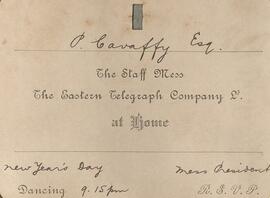 P. Cavaffy Esq.
The Staff Mess
The Eastern Telegraph Company Ld.
at Home
New Year's Day Mess President
Dancing 9.15 pm R.S.V.P.